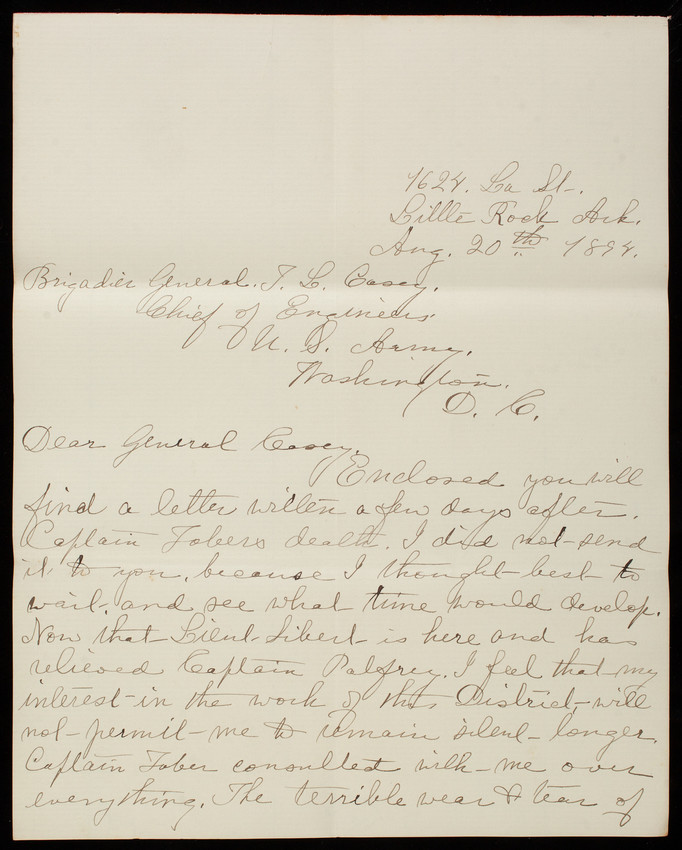 1624. La St.
Little Rock Ark.
Aug. 20th 1894.
Brigadier General. T. L. Casey.
Chief of Engineers.
U. S. Army.
Washington.
D. C.
Dear General Casey.
Enclosed you will
find a letter written a few days after.
Captain Tabers death. I did not send
it to you, because I thought best to
wait, and see what time would develop.
Now that Lieut. Sibert is here and has
relieved Captain Palfrey. I feel that my
interest in the work of this District will
not permit me to remain silent longer.
Captain Taber consulted with me over
everything. The terrible wear & tear of